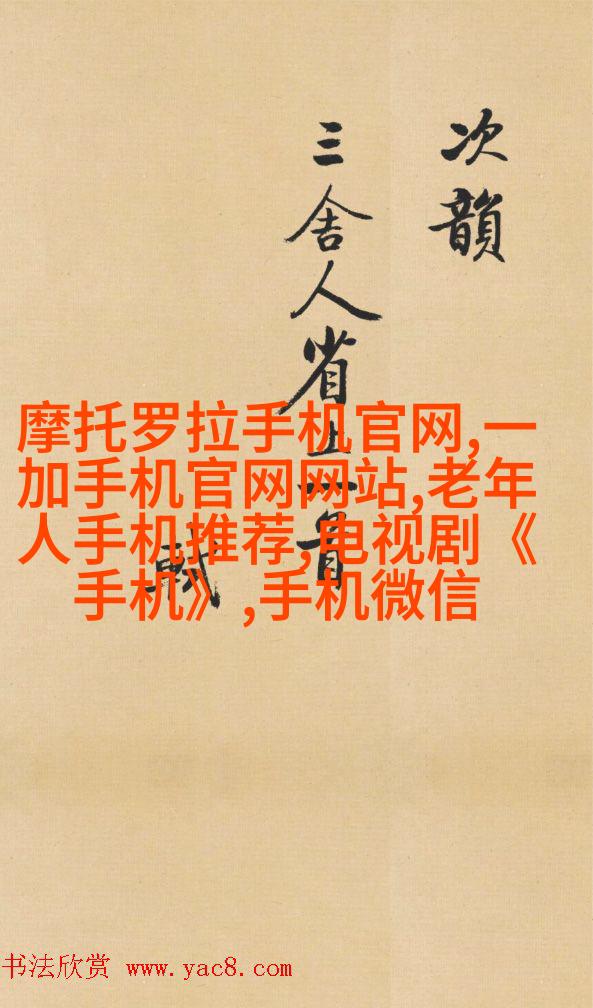 次韻
三舍人省上一首
軾
摩托罗拉手机官网,一
加手机官网网站,老年
人手机推荐,电视剧《
手机》,手机微信
书法欣赏 www.yac8.com